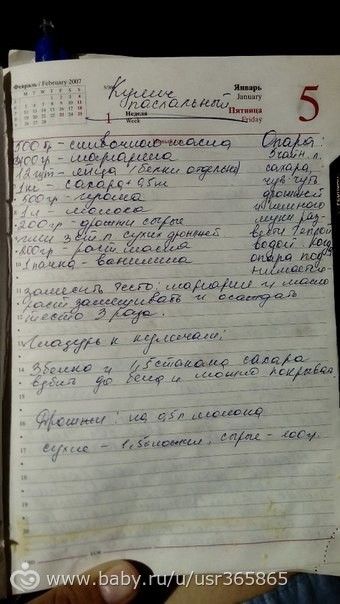 Февраль / February 2007
Январь
January
Пятница
Friday
5
1
Неделя
Week
Кулич
пасхальный
500 гр - сливочного масла
400 гр - маргарина
12 шт - яйца (белки отдельно)
1 кг - сахара + 0,5 кг
500 гр - изюма
1 л - молока
200 гр - дрожжи сырые
или 3 ст л. сухих дрожжей
200 гр - раст масла
1 пачка - ванилина
Опара:
3 чайн. л.
сахара
чуть чуть
дрожжей
немного
муки раз-
вести теплой
водой, когда
опара под
нимается
Замесить тесто, маргарин и масло
раст замешивать и осаждать
тесто 3 раза.
Глазурь к куличам:
3 белка и 1,5 стакана сахара
взбить до бела и можно покрывать
Дрожжи: на 0,5 л молока
сухие - 1,5 ложки, сырые - 100 гр.
www.baby.ru/u/usr365865